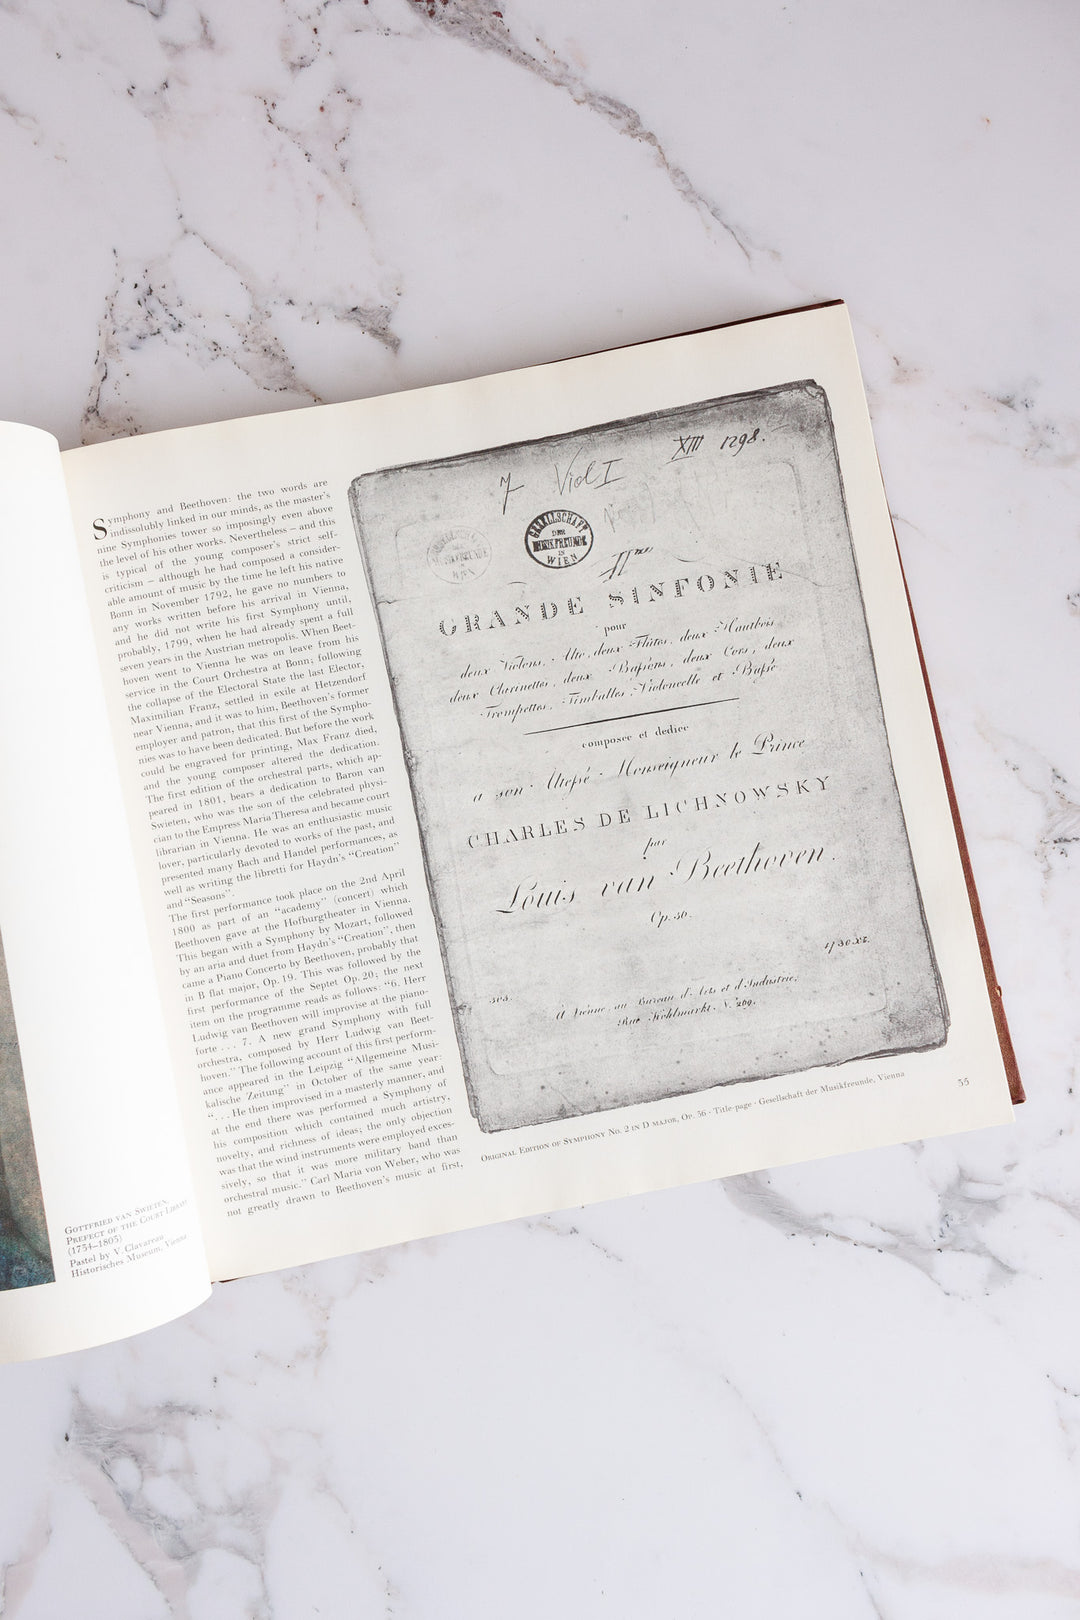 GOTTFRIED VAN SWIETEN,
PREFECT OF THE COURT LIBRARY
(1734–1803)
Pastel by V. Clavareau
Historisches Museum, Vienna
Symphony and Beethoven: the two words are
indissolubly linked in our minds, as the master's
nine Symphonies tower so imposingly even above
the level of his other works. Nevertheless – and this
is typical of the young composer's strict self-
criticism – although he had composed a consider-
able amount of music by the time he left his native
Bonn in November 1792, he gave no numbers to
any works written before his arrival in Vienna,
and he did not write his first Symphony until,
probably, 1799, when he had already spent a full
seven years in the Austrian metropolis. When Beet-
hoven went to Vienna he was on leave from his
service in the Court Orchestra at Bonn; following
the collapse of the Electoral State the last Elector,
Maximilian Franz, settled in exile at Hetzendorf
near Vienna, and it was to him, Beethoven's former
employer and patron, that this first of the Sympho-
nies was to have been dedicated. But before the work
could be engraved for printing, Max Franz died,
and the young composer altered the dedication.
The first edition of the orchestral parts, which ap-
peared in 1801, bears a dedication to Baron van
Swieten, who was the son of the celebrated physi-
cian to the Empress Maria Theresa and became court
librarian in Vienna. He was an enthusiastic music
lover, particularly devoted to works of the past, and
presented many Bach and Handel performances, as
well as writing the libretti for Haydn's "Creation"
and "Seasons".
The first performance took place on the 2nd April
1800 as part of an "academy" (concert) which
Beethoven gave at the Hofburgtheater in Vienna.
This began with a Symphony by Mozart, followed
by an aria and duet from Haydn's "Creation", then
came a Piano Concerto by Beethoven, probably that
in B flat major, Op. 19. This was followed by the
first performance of the Septet Op. 20; the next
item on the programme reads as follows: "6. Herr
Ludwig van Beethoven will improvise at the piano-
forte . . . 7. A new grand Symphony with full
orchestra, composed by Herr Ludwig van Beet-
hoven." The following account of this first perform-
ance appeared in the Leipzig "Allgemeine Musi-
kalische Zeitung" in October of the same year:
". . . He then improvised in a masterly manner, and
at the end there was performed a Symphony of
his composition which contained much artistry,
novelty, and richness of ideas; the only objection
was that the wind instruments were employed exces-
sively, so that it was more military band than
orchestral music." Carl Maria von Weber, who was
not greatly drawn to Beethoven's music at first,
7 Viol I XIII 1298.
GESELLSCHAFT
DER
MUSIKFREUNDE
IN
WIEN
GRANDE SINFONIE
pour
deux Violons, Alto, deux Flûtes, deux Hautbois,
deux Clarinettes, deux Bassons, deux Cors, deux
Trompettes, Timballes, Violoncelle et Basse
composée et dediée
a son Altesse Monseigneur le Prince
CHARLES DE LICHNOWSKY
par
Louis van Beethoven.
Op. 36.
303.
à Vienne au Bureau d'Arts et d'Industrie.
Rue Kohlmarkt. N.º 269.
ORIGINAL EDITION OF SYMPHONY NO. 2 IN D MAJOR, OP. 36 · Title-page · Gesellschaft der Musikfreunde, Vienna
35